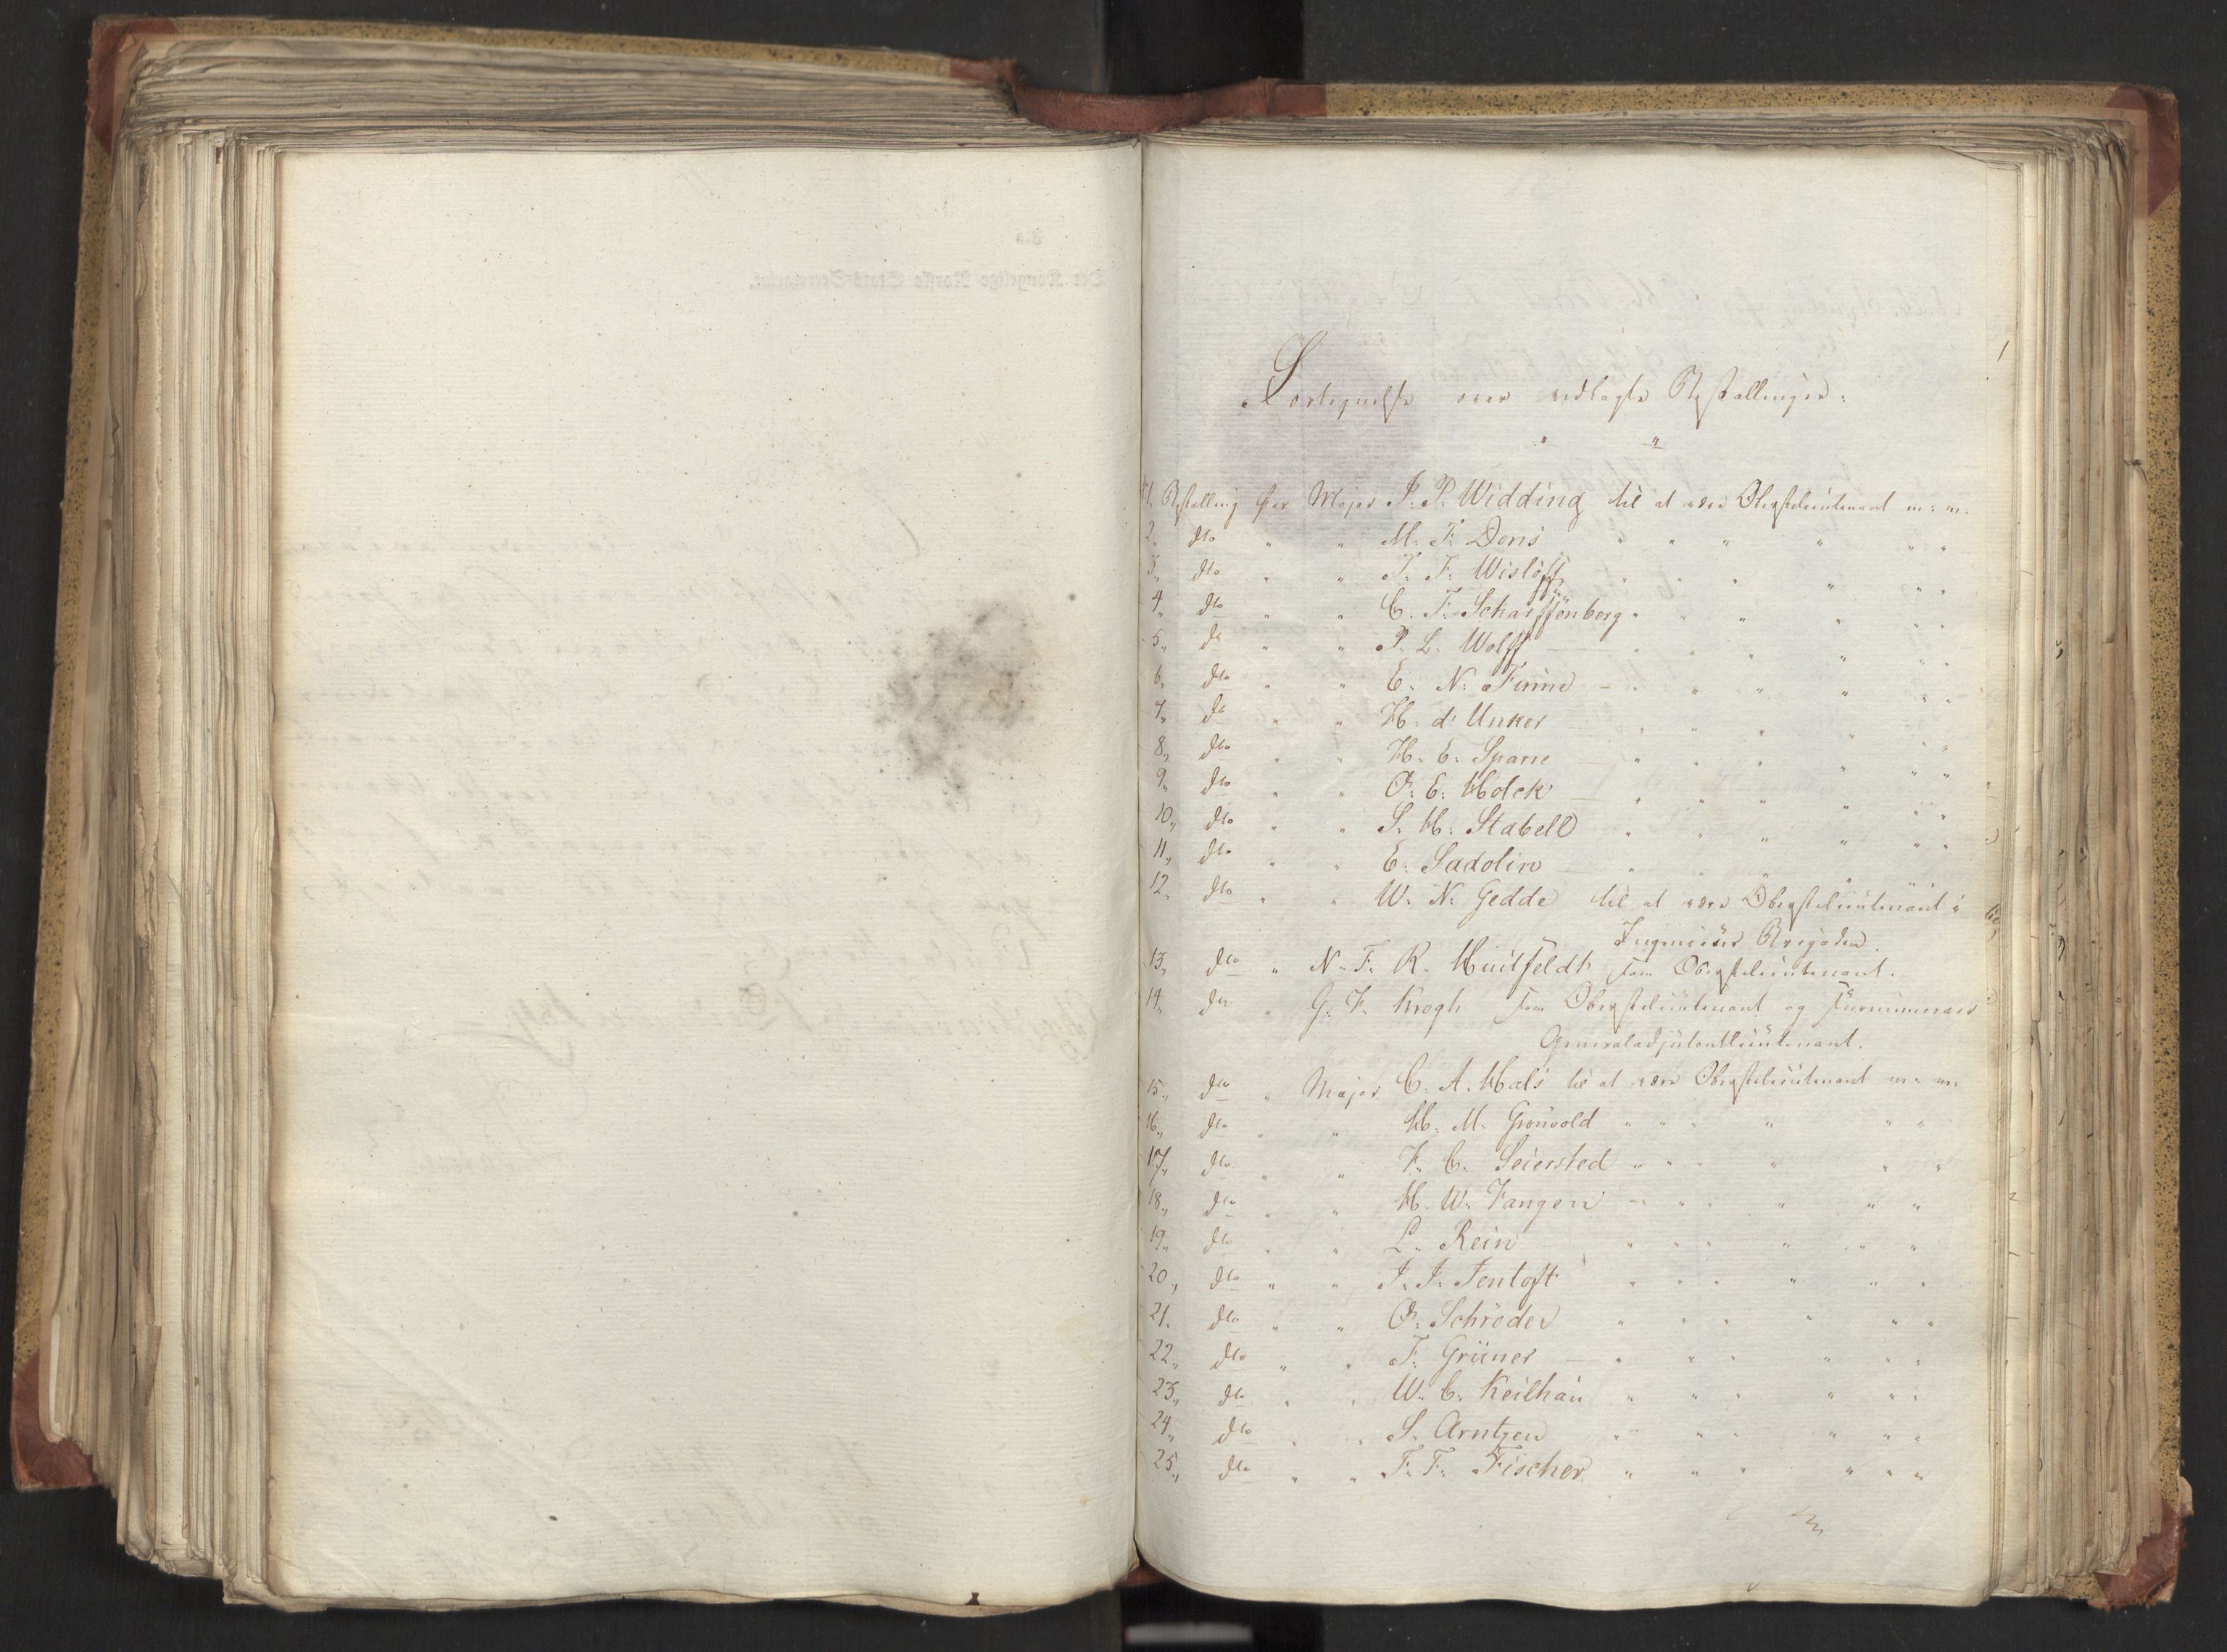 Fortegnelse over vedlagte Bestallinger:
1, Bestalling for Major J. P. Widding til at være Oberstlieutenant m: m:
2, dto " " M. F. Doris " " " " " "
3, dto " " J. F. Wisløff " " " " " "
4, dto " " C. F. Scharffenberg " " " " " "
5, dto " " P. L. Wolff — " " " " " "
6, dto " " E. N. Finne — " " " " " "
7, dto " " H. d'Unker " " " " " "
8, dto " " H. E. Sparre — " " " " " "
9, dto " " O. E. Holck — " " " " " "
10, dto " " S. H. Stabell " " " " " "
11, dto " " E. Sadolin — " " " " " "
12, dto " " W. N. Gedde til at være Oberstlieutenant i
Ingenieur Brigaden.
13, dto " N. F. R. Huitfeldt som Oberstlieutenant.
14, dto " G. F. Krogh som Oberstlieutenant og surnumerær
Generaladjutantlieutenant.
15, dto " Major C. A. Hals til at være Oberstlieutenant m: m:
16, dto " " H. M. Grønvold " " " " " "
17, dto " " F. C. Seiersted " " " " " "
18, dto " " H. W. Fangen — " " " " "
19, dto " " L. Rein " " " " " "
20, dto " " J. J. Jentoft " " " " " "
21, dto " " O. Schrøder " " " " " "
22, dto " " F. Grüner — " " " " " "
23, dto " " W. C. Keilhau " " " " " "
24, dto " " S. Arntzen " " " " " "
25, dto " " F. F. Fischer " " " " " "